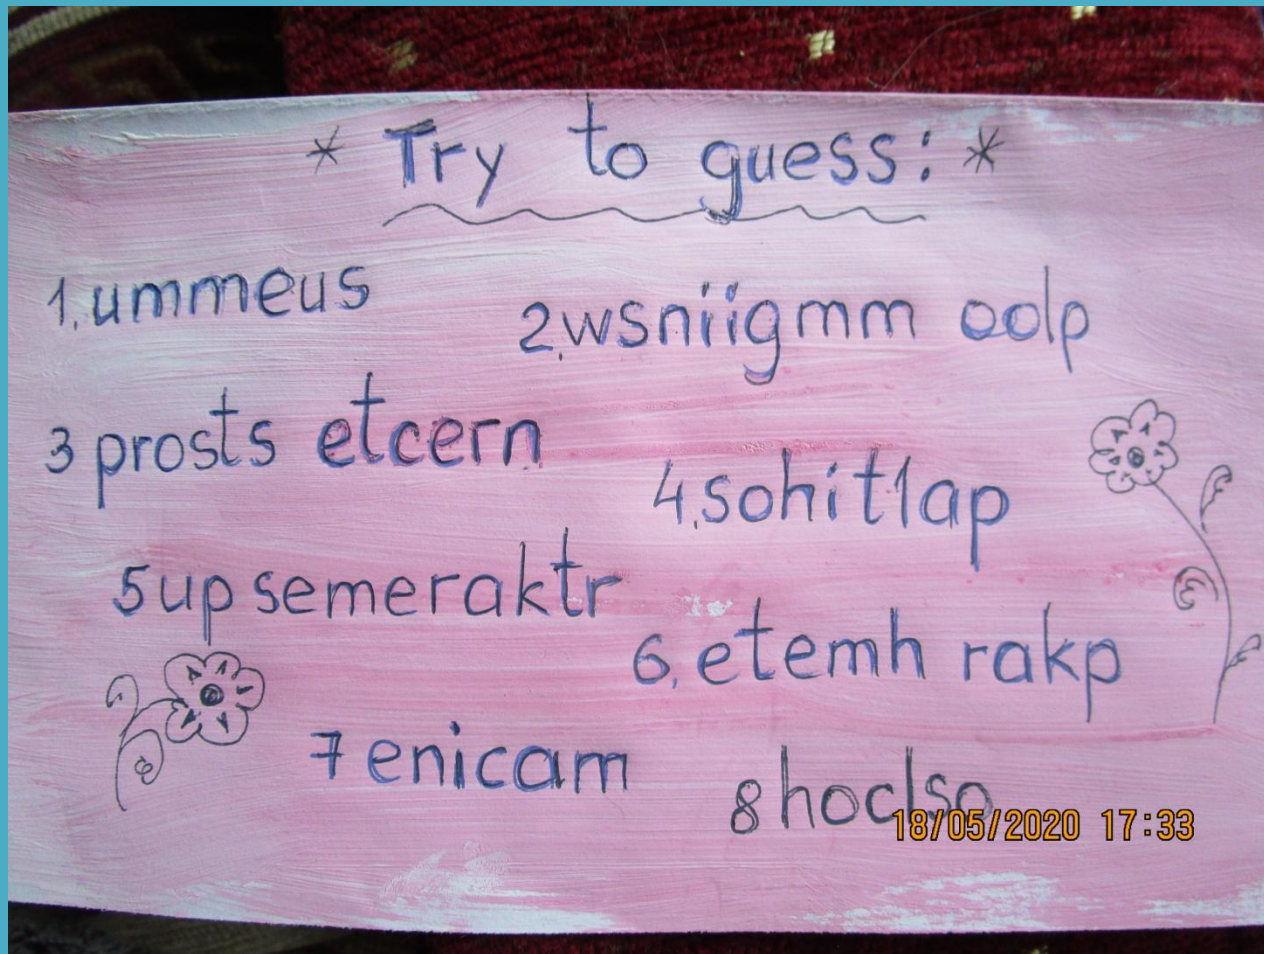 * Try to guess: *
1. ummeus
2. wsniigmm oolp
3 prosts etcern
4. sohitlap
5 up semeraktr
6. etemh rakp
7 enicam
8 hoclso
18/05/2020 17:33